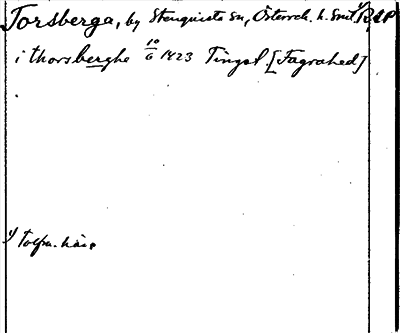 Torsberga, by Stenquista sn, Österreh. h. Smt¹⁾ RAP
i thorsberghe 10/6 1423 Tingsl. [Fagrahed]
¹⁾ Tolfm. hds